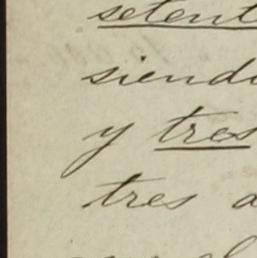 setent
siend
y tres
tres a